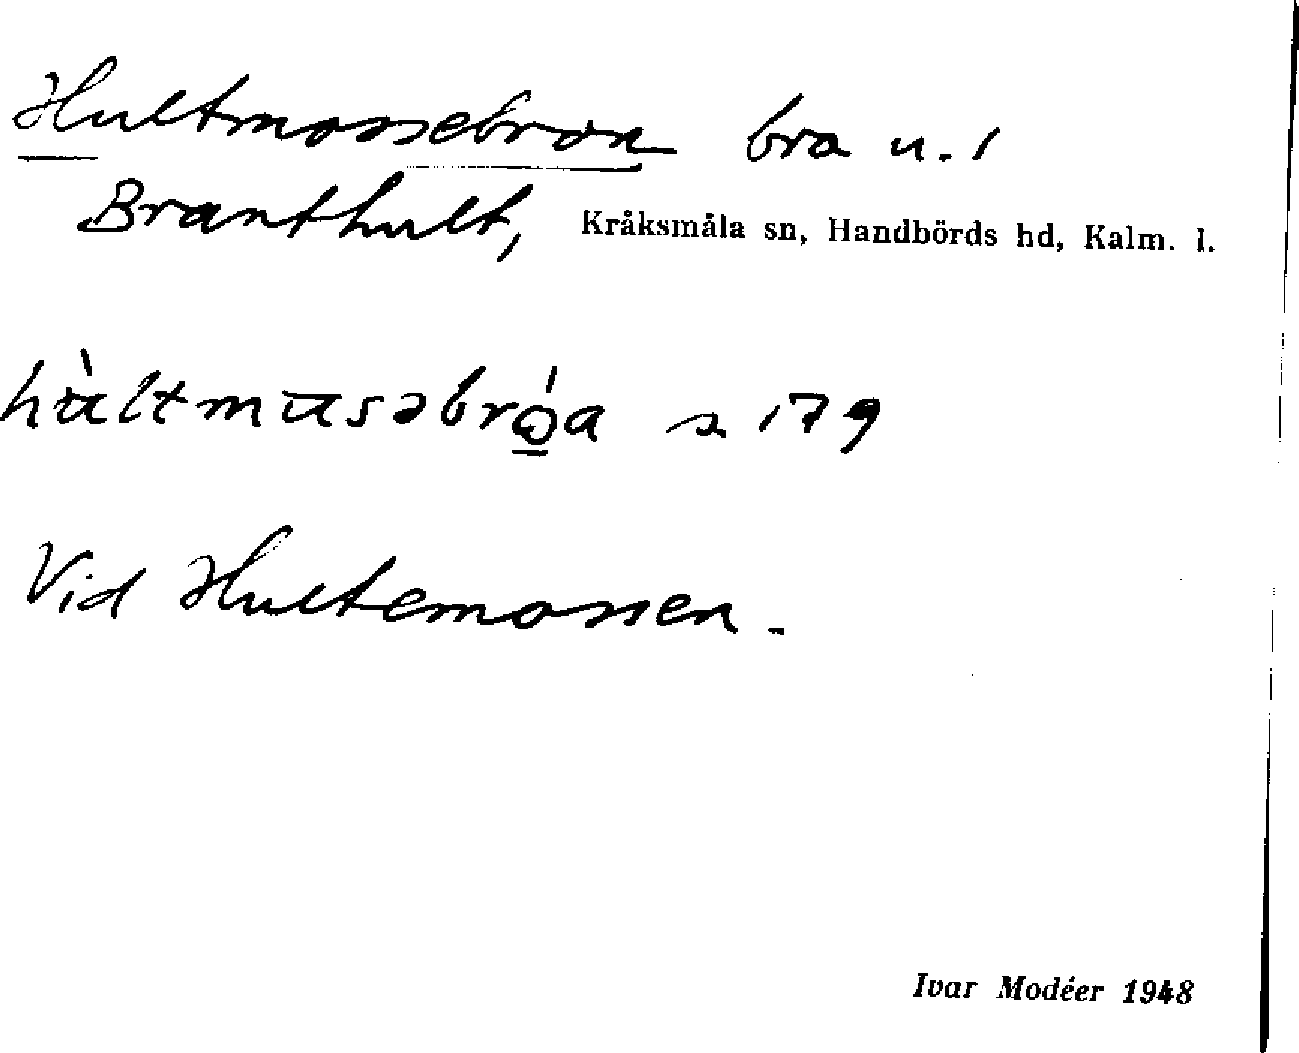 Hultmossebron bro u. 1
Branthult, Kråksmåla sn, Handbörds hd, Kalm. l.
hùltmusəbró̱a s 179
Vid Hultemossen.
Ivar Modéer 1948